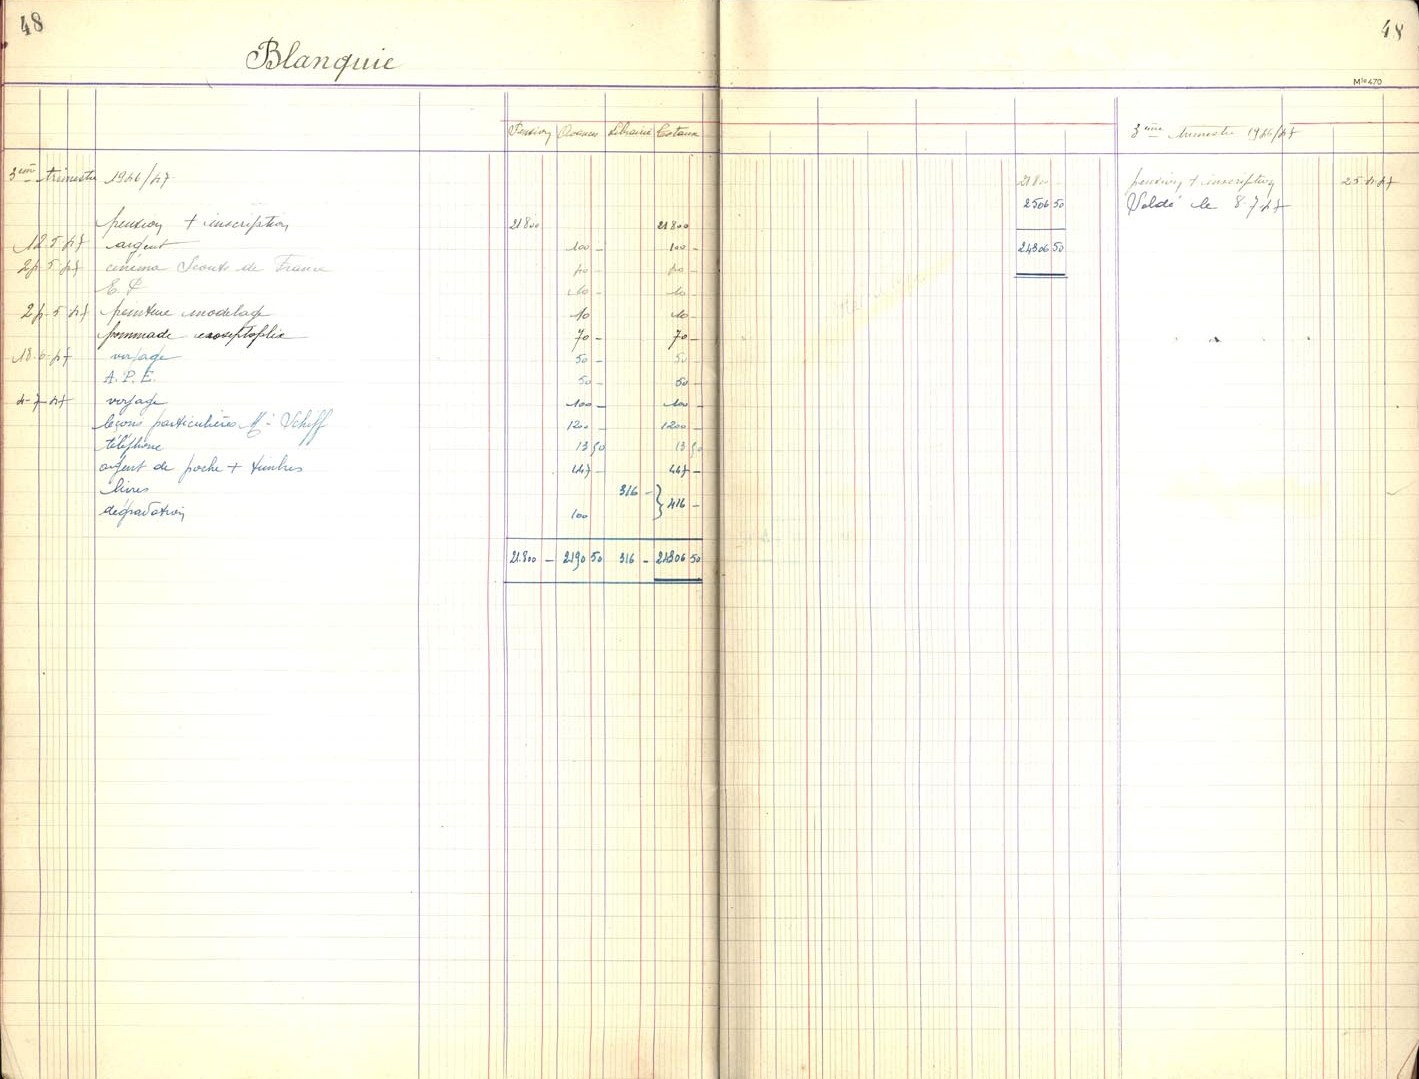 48
Blanquie
48
Mle 470
Pension Avances Librairie Totaux
3ème trimestre 1946/47
3ème trimestre 1946/47
21800 -
pension + inscription 25.4.47
2506 50
Soldé le 8 7 47
pension + inscription 21800 21800
12.5.47 argent 100 - 100 -
24306 50
cinéma Scouts de France
10 - 10 -
peinture modelage 10 10 -
pommade 70 - 70 -
18.6.47 voyage 50 - 50 -
A.P.E. 50 - 50 -
4-7-47 voyage 100 - 100 -
leçons particulières Mr Schiff 1200 - 1200 -
téléphone 13 50 13 50
argent de poche + timbres 447 - 447 -
livres 316 -
416 -
dégradation 100
21.800 - 2190 50 316 - 24306 50